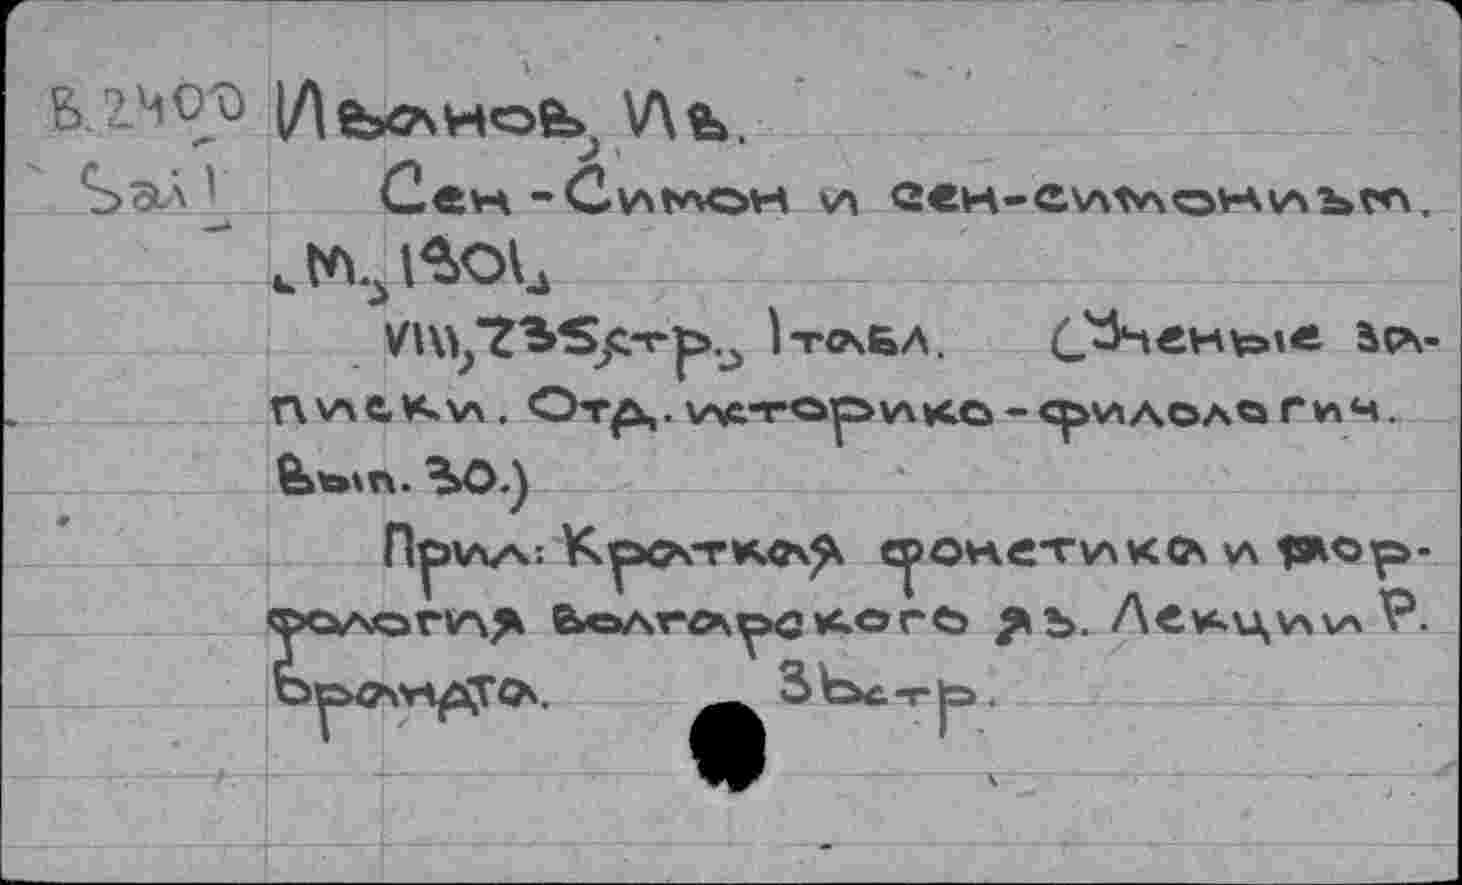 В.2400 Иванов, Ив.
Зал 1 Сен-Симон и сен-симонизм.
М., 1901,
VIII, 735 стр., 1 табл. (Ученые за-
писки. Отд. историко-филологич.
Вып. 30.)
Прил.: Краткая фонетика и мор-
фология болгарского яз. Лекции Р.
Брандта. 38 стр.